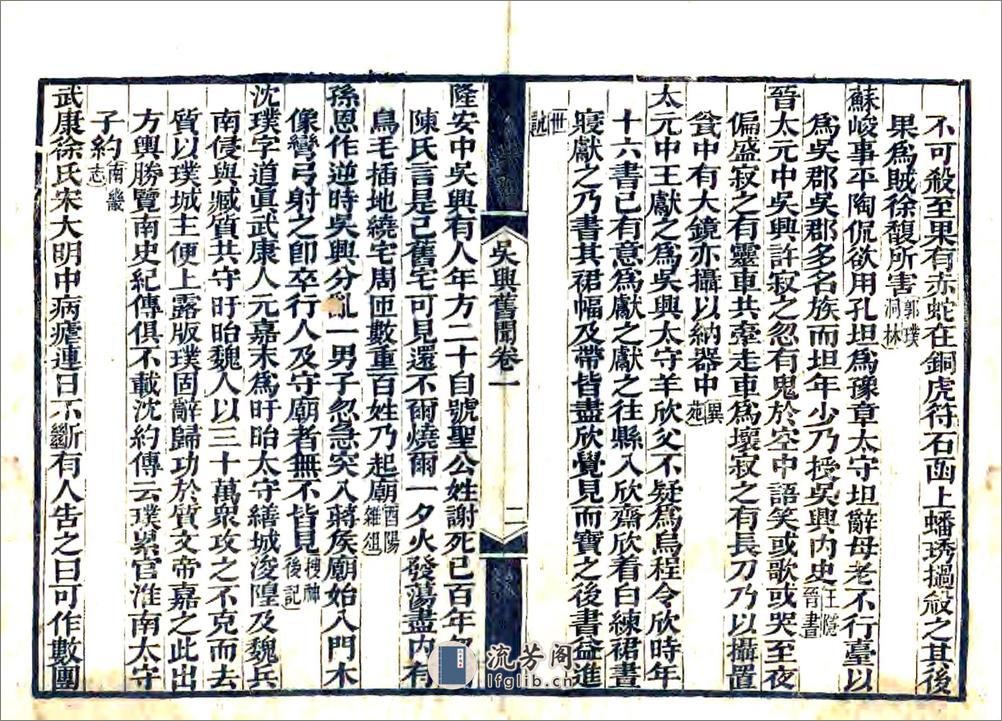 不可殺至果有赤蛇在銅虎符石函上蟠琇撾殺之其後
果爲賊徐馥所害郭璞洞林
蘇峻事平陶侃欲用孔坦爲豫章太守坦辭母老不行臺以
爲吳郡吳郡多名族而坦年少乃授吳興內史王隱晉書
晉太元中吳興許寂之忽有鬼於空中語笑或歌或哭至夜
偏盛寂之有靈車共牽走車爲壞寂之有長刀乃以攝置
瓮中有大鏡亦攝以納器中異苑
太元中王獻之爲吳興太守羊欣父不疑爲烏程令欣時年
十六書已有意爲獻之獻之往縣入欣齋欣看白練裙晝
寢獻之乃書其裙幅及帶皆盡欣覺見而寶之後書益進
世說
吳興舊聞卷一
二
隆安中吳興有人年方二十自號聖公姓謝死已百年忽
陳氏言是己舊宅可見還不爾燒爾一夕火發蕩盡內有
鳥毛插地繞宅周匝數重百姓乃起廟酉陽雜俎
孫恩作逆時吳興分亂一男子忽急突入蔣侯廟始入門木
像彎弓射之卽卒行人及守廟者無不皆見搜神後記
沈璞字道眞武康人元嘉末爲盱眙太守繕城浚隍及魏兵
南侵與臧質共守盱眙魏人以三十萬衆攻之不克而去
質以璞城主便上露版璞固辭歸功於質文帝嘉之此出
方輿勝覽南史紀傳俱不載沈約傳云璞累官淮南太守
子約南畿志
武康徐氏宋大明中病瘧連日不斷有人告之曰可作數團
流芳阁
lfglib.cn